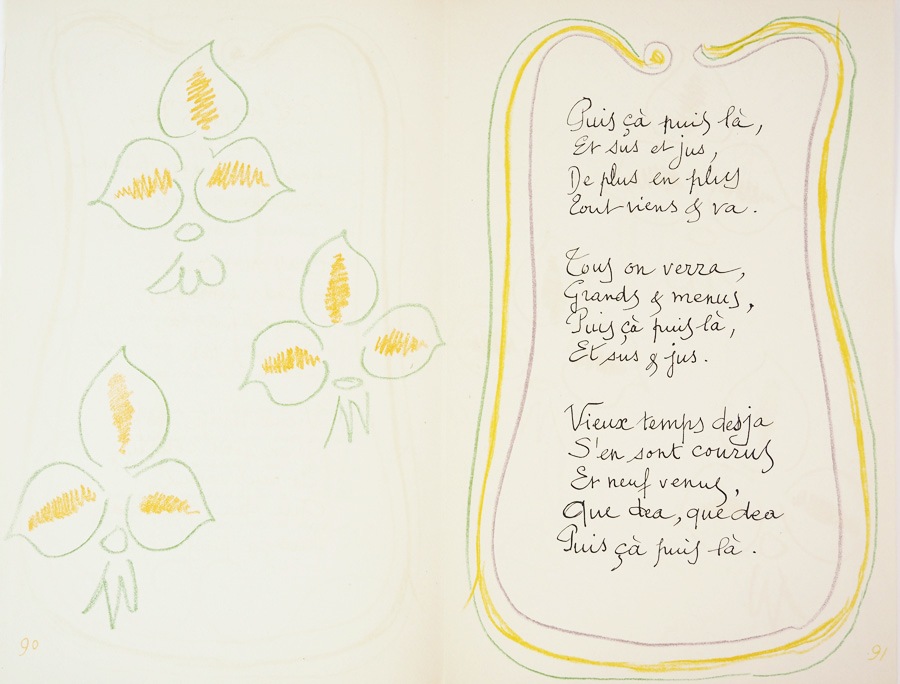 90
Puis çà puis là,
Et sus et jus,
De plus en plus
Tout viens & va.
Tous on verra,
Grands & menus,
Puis çà puis là,
Et sus & jus.
Vieux temps desja
S'en sont courus
Et neuf venus,
Que dea, que dea
Puis çà puis là.
91